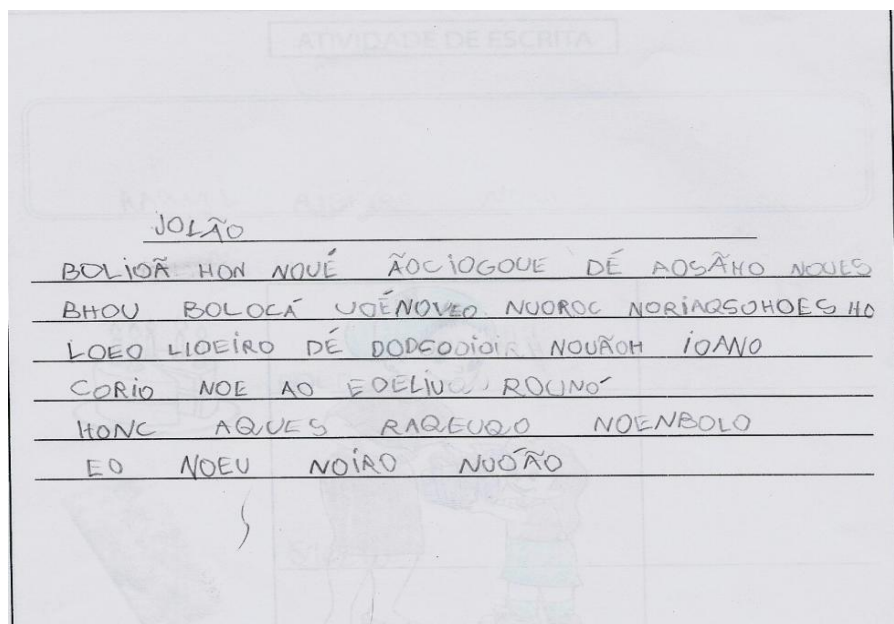 ATIVIDADE DE ESCRITA
JOLÃO
BOLIOÃ HON NOUÉ ÃOCIOGOUE DÉ AOSÃHO NOUES
BHOU BOLOCÁ UOÉNOVEO NUOROC NORIAQSOHOES HO
LOEO LIOEIRO DÉ NOUÃOH IOANO
CORIO NOE AO ROUNÓ
HONC AQUES RAQEUQO NOENBOLO
EO NOEU NOIRO NUÓÃO